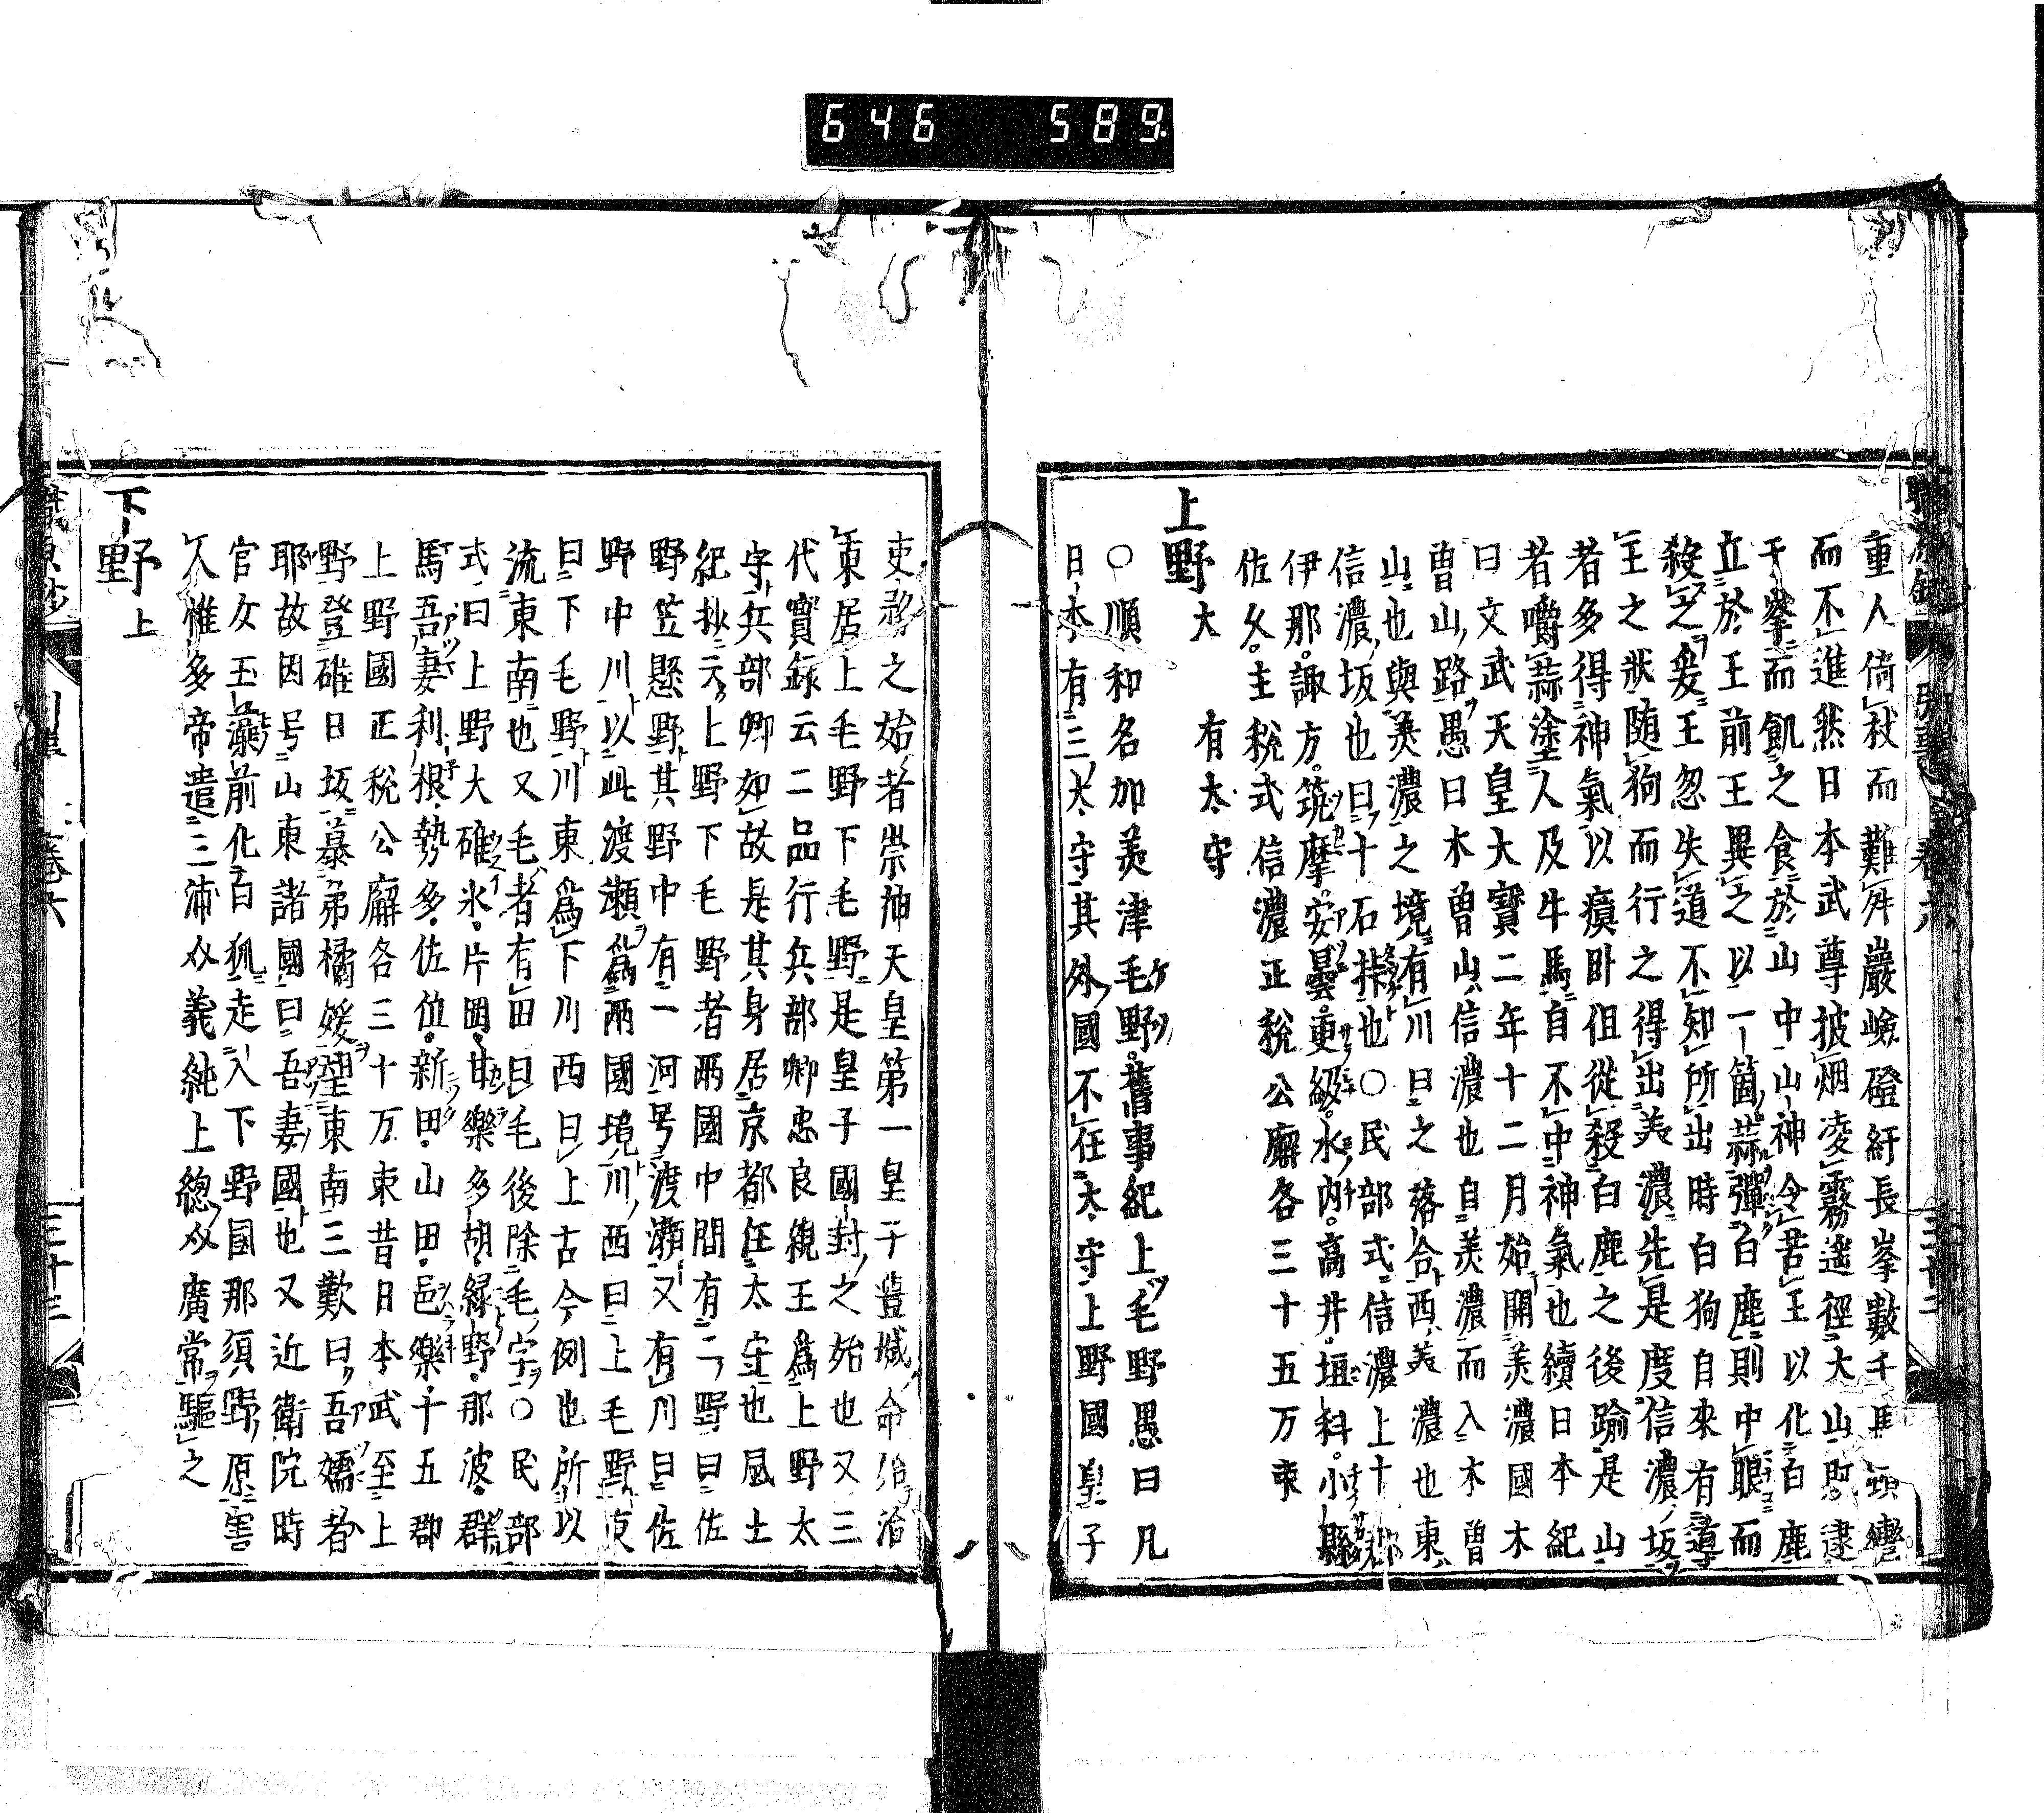 646 589.
重人倚杖而難舛嚴嶮磴紆長峯數千馬頭轡
而不進然日本武尊披烟凌霧遥徑大山既逮
于峯而飢之食於山中山神令苦王以化白鹿
立於王前王異之以一箇蒜彈白鹿則中眼而
殺之爰王忽失道不知所出時白狗自來有導
王之狀随狗而行之得出美濃先是度信濃坂
者多得神氣以瘼臥但從殺白鹿之後踰是山
者嚼蒜塗人及牛馬自不中神氣也續日本紀
曰文武天皇大寶二年十二月始開美濃國木
曽山路愚曰木曽山信濃也自美濃而入木曽
山也與美濃之境有川曰之落合西美濃也東
信濃坂也曰十石桟也〇民部式信濃上十郡
伊那諏方筑摩安曇更級水内高井垣科小縣
佐久主税式信濃正税公廨各三十五万束
上野 大 有太守
〇順和名加美津毛野舊事紀上毛野愚曰凡
日本有三太守其外國不任太守上野國皇子
吏務之始者崇神天皇第一皇子豊城命始治
東居上毛野下毛野是皇子國封之始也又三
代實録云二品行兵部卿忠良親王爲上野太
守兵部卿如故是其身居京都任太守也風土
紀抄云上野下毛野者兩國中間有二野曰佐
野笠懸野其野中有一河号渡瀬又有川曰佐
野中川以此渡瀬爲兩國境川西曰上毛野東
曰下毛野川東爲下川西曰上古今例也所以
流東南也又毛者有田曰毛後除毛字〇民部
式曰上野大碓氷片岡甘樂多胡緑野那波群
馬吾妻利根勢多佐位新田山田邑樂十五郡
上野國正税公廨各三十万束昔日本武至上
野登碓日坂慕弟橘媛望東南三歎曰吾嬬者
耶故因号山東諸國曰吾妻國也又近衛院時
官女玉藻前化白狐走入下野国那須野原害
人惟多帝遣三浦介義純上總介廣常驅之
下野 上